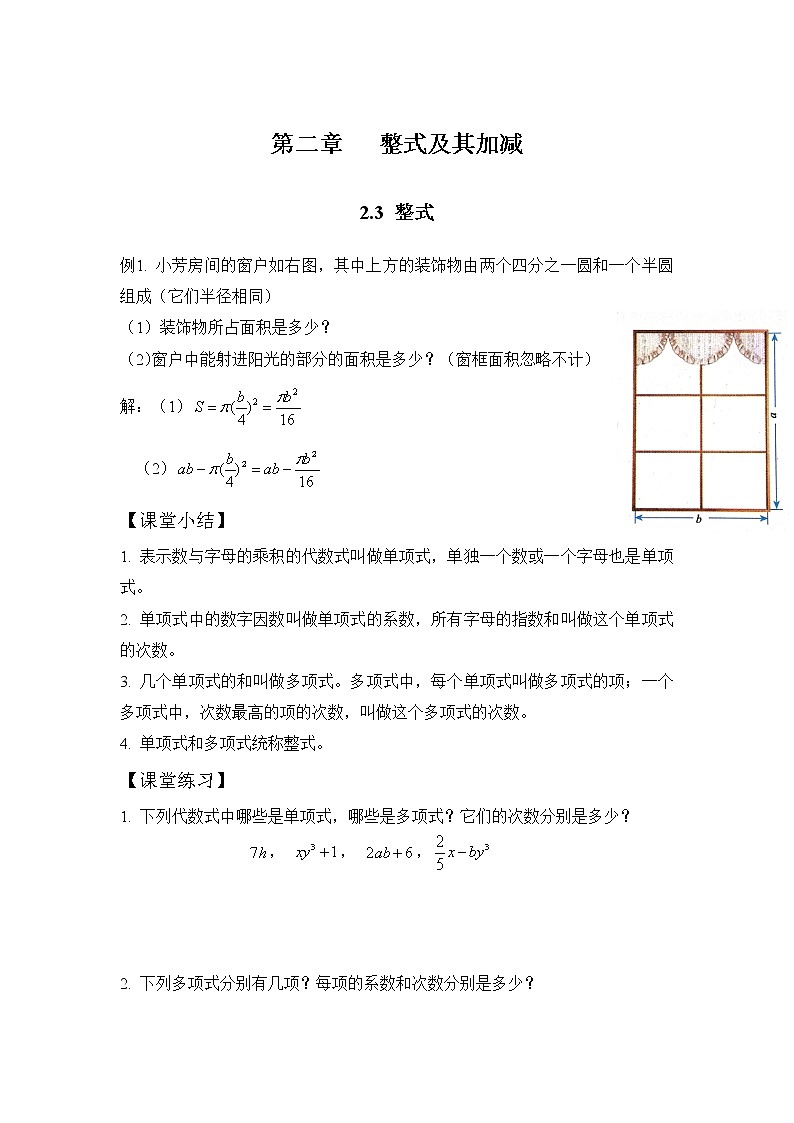 第二章 整式及其加减
2.3 整式
例1. 小芳房间的窗户如右图，其中上方的装饰物由两个四分之一圆和一个半圆
组成（它们半径相同）
（1）装饰物所占面积是多少？
（2)窗户中能射进阳光的部分的面积是多少？（窗框面积忽略不计）
解：（1）S = π(b/4)² = πb²/16
（2）ab − π(b/4)² = ab − πb²/16
a
b
【课堂小结】
1. 表示数与字母的乘积的代数式叫做单项式，单独一个数或一个字母也是单项
式。
2. 单项式中的数字因数叫做单项式的系数，所有字母的指数和叫做这个单项式
的次数。
3. 几个单项式的和叫做多项式。多项式中，每个单项式叫做多项式的项；一个
多项式中，次数最高的项的次数，叫做这个多项式的次数。
4. 单项式和多项式统称整式。
【课堂练习】
1. 下列代数式中哪些是单项式，哪些是多项式？它们的次数分别是多少？
7h， xy³+1， 2ab+6，2/5 x−by³
2. 下列多项式分别有几项？每项的系数和次数分别是多少？